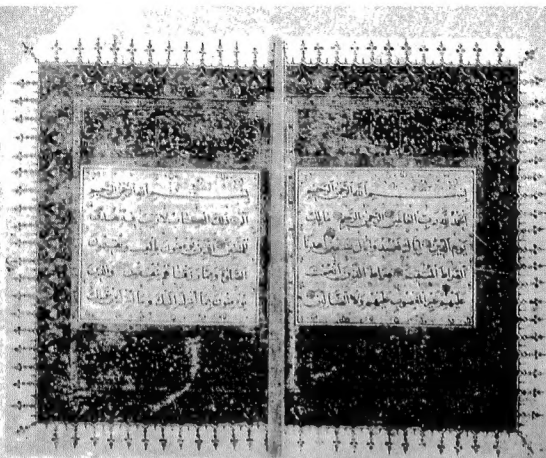 بسم الله الرحمن الرحيم
الحمد لله رب العالمين الرحمن الرحيم مالك
يوم الدين إياك نعبد وإياك نستعين اهدنا
الصراط المستقيم صراط الذين أنعمت
عليهم غير المغضوب عليهم ولا الضالين
بسم الله الرحمن الرحيم
الم ذلك الكتاب لا ريب فيه هدى
للمتقين الذين يؤمنون بالغيب ويقيمون
الصلوة ومما رزقناهم ينفقون والذين
يؤمنون بما أنزل إليك وما أنزل من قبلك